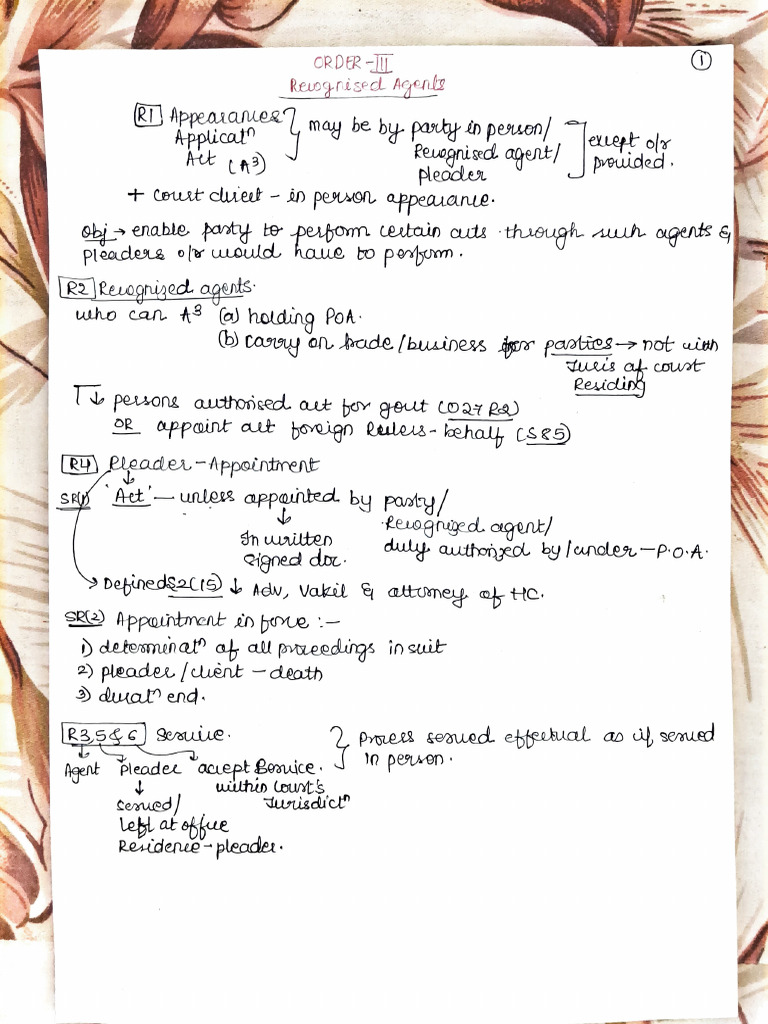 ORDER-III
①
Recognised Agents
R1 Appearances
Applicatn
Act (A3)
may be by party in person/
Recognised agent/
pleader
except o/r
provided.
+ court direct - in person appearance.
obj → enable party to perform certain acts through such agents &
pleaders o/r would have to perform.
R2 Recognized agents.
who can A3 (a) holding POA.
(b) carry on trade/business for parties → not with
Juris of court
Residing
↓ persons authorised act for govt (O27 R2)
OR appoint act foreign Rulers - behalf (S85)
R4 Pleader - Appointment
SR(1) 'Act' - unless appointed by party/
Recognized agent/
duly authorized by/under - P.O.A.
↓
In written
signed doc.
→ Defined S2(15) ↓ Adv, Vakil & attorney of HC.
SR(2) Appointment in force :-
1) determinatn of all proceedings in suit
2) pleader/client - death
3) duratn end.
R3,5 & 6 Service.
Agent pleader accept service.
within court's
Jurisdictn
↓
served/
Left at office
Residence - pleader.
Process served effectual as if served
in person.